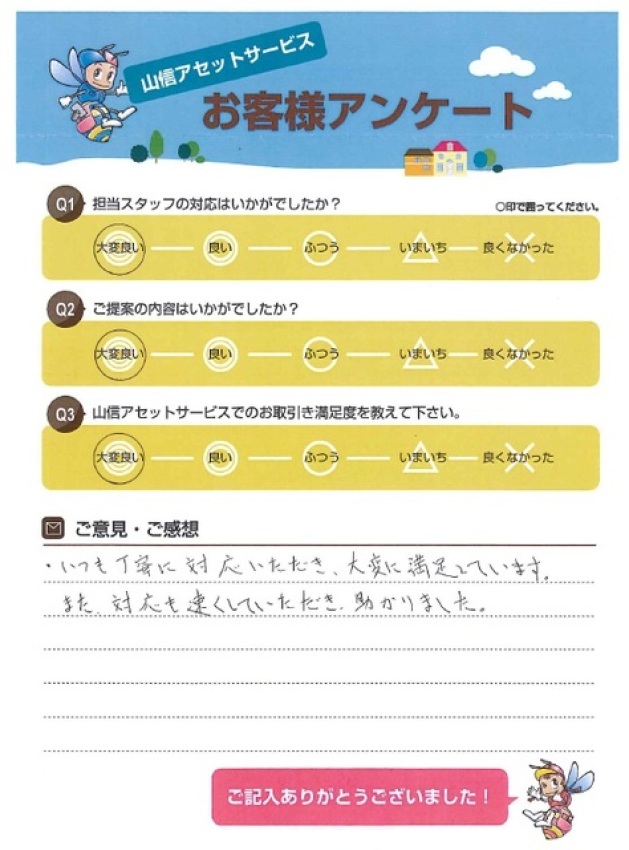 山信アセットサービス
お客様アンケート
Q1 担当スタッフの対応はいかがでしたか? ○印で囲ってください。
大変良い 良い ふつう いまいち 良くなかった
Q2 ご提案の内容はいかがでしたか?
大変良い 良い ふつう いまいち 良くなかった
Q3 山信アセットサービスでのお取引き満足度を教えて下さい。
大変良い 良い ふつう いまいち 良くなかった
ご意見・ご感想
・いつも丁寧に対応いただき、大変に満足しています。
また、対応も速くしていただき、助かりました。
ご記入ありがとうございました!